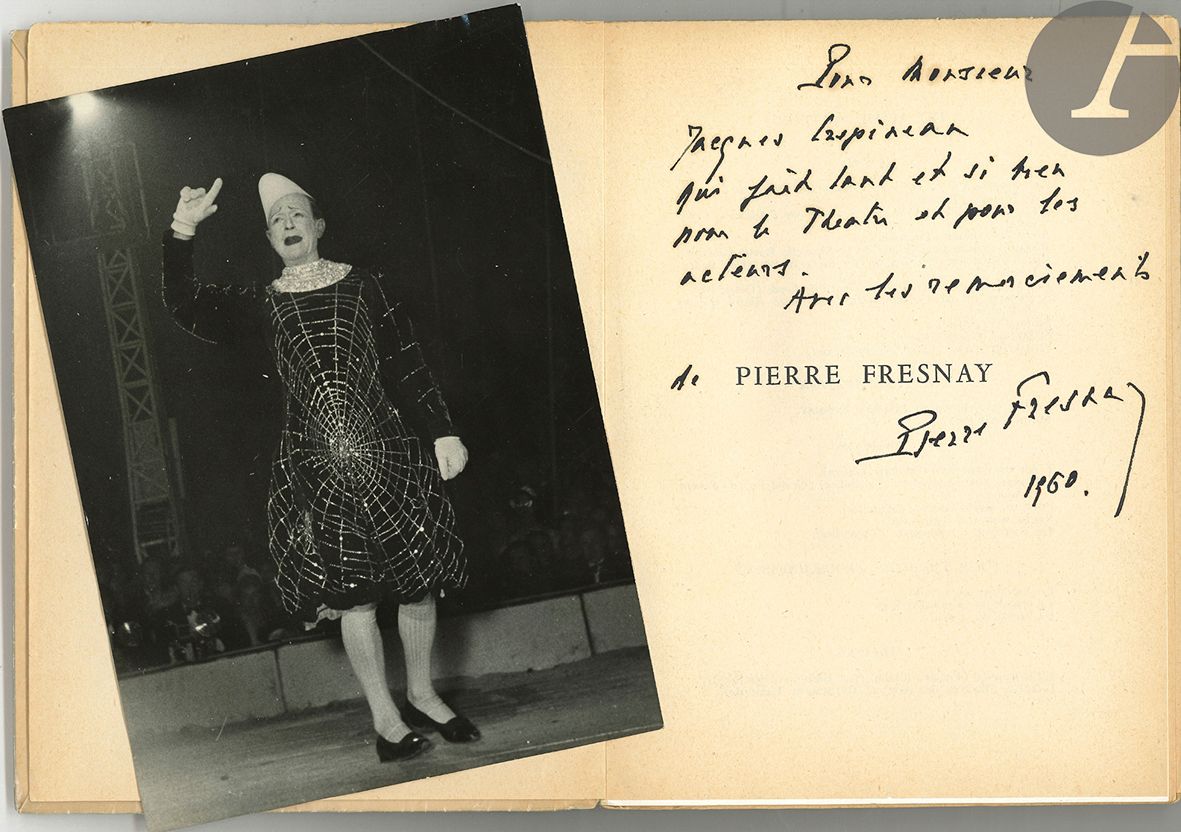 Pour Monsieur
Jacques Crepineau
qui fait tant et si bien
pour le Théatre et pour les
acteurs.
Avec les remerciements
de PIERRE FRESNAY
Pierre Fresnay
1960.